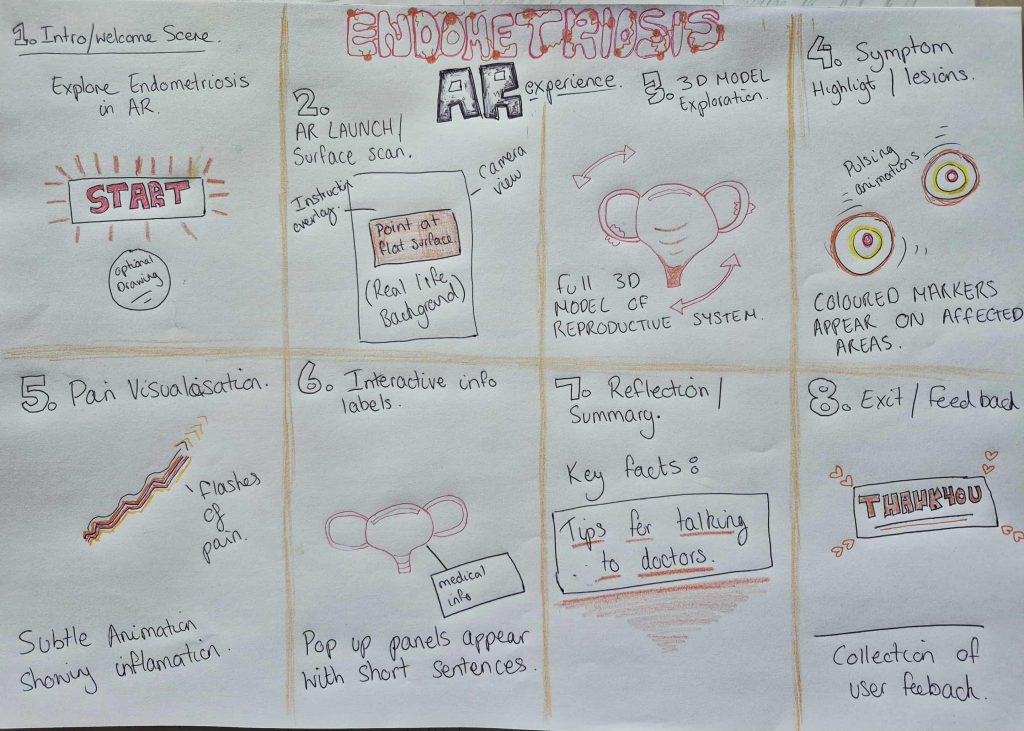 ENDOMETRIOSIS
AR experience.
1. Intro/welcome Scene.
Explore Endometriosis
in AR.
START
optional
Drawing
2.
AR LAUNCH/
Surface scan.
Instruction
overlay.
camera
view
Point at
flat surface.
(Real life
Background)
3. 3D MODEL
Exploration.
FULL 3D
MODEL OF
REPRODUCTIVE SYSTEM.
4. Symptom
Highligt / lesions.
Pulsing
animations.
COLOURED MARKERS
APPEAR ON AFFECTED
AREAS.
5. Pain Visualisation.
flashes
of
pain.
Subtle Animation
showing inflamation.
6. Interactive info
labels.
medical
info
Pop up panels appear
with short sentences.
7. Reflection/
Summary.
Key facts:
Tips for talking
to doctors.
8. Exit/feedback
THANKYOU
Collection of
user feeback.